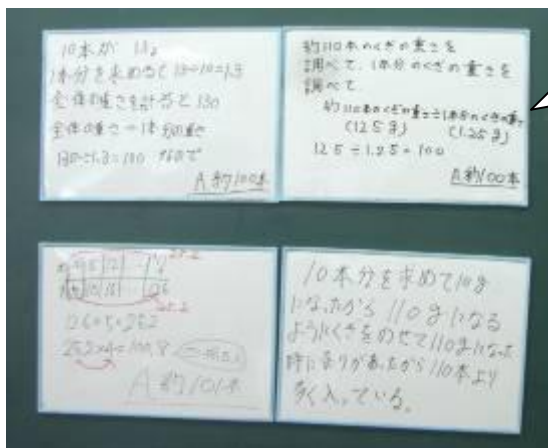 10本が 13g
1本分を求めると13÷10=1.3
全体の重さを計ると130
全体の重さ÷1本分の重さ
130÷1.3=100 なので
A 約100本
約110本のくぎの重さを
調べて、1本分のくぎの重さを
調べて、
約110本のくぎの重さ÷1本分のくぎの重さ
(125g) (1.25g)
125÷1.25=100
A 約100本
25.2
126÷5=25.2
25.2×4=100.8
A 約101本
10本分を求めて10g
になったから110gになる
ようにくぎをのせて110gになった
時に余りがあったから110本より
多く入っている。